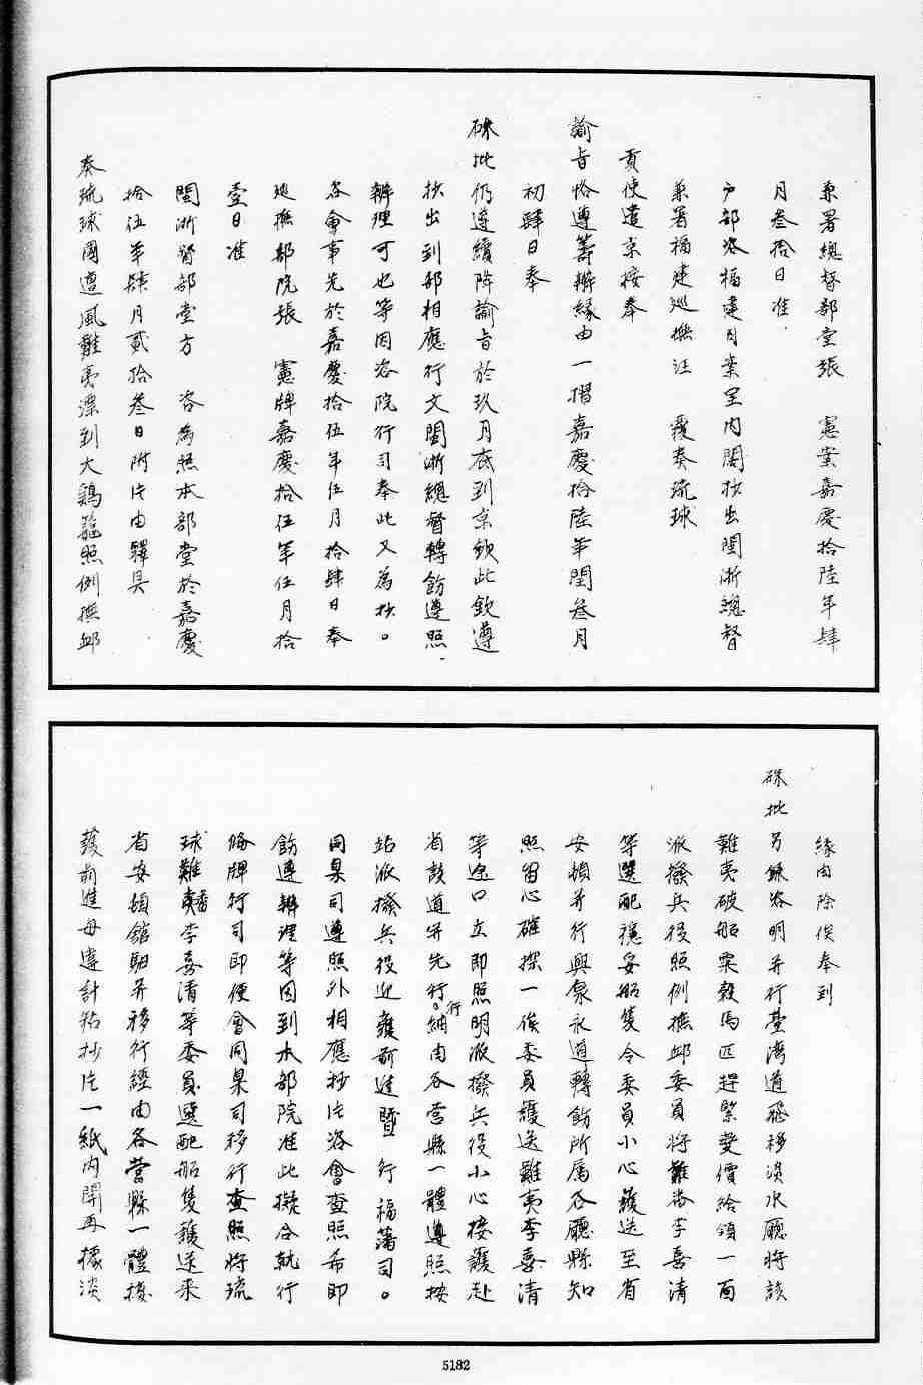 兼署總督部堂張　憲案嘉慶拾陸年肆
月叁拾日准
戶部咨福建司案呈內閣抄出閩浙總督
兼署福建巡撫汪　覆奏琉球
貢使遣京接奉
諭旨恪遵籌辦緣由一摺嘉慶拾陸年閏叁月
初肆日奉
硃批仍遵續降諭旨於玖月底到京欽此欽遵
抄出到部相應行文閩浙總督轉飭遵照
辦理可也等因咨院行司奉此又為抄。
咨會事先於嘉慶拾伍年伍月拾肆日奉
巡撫部院張　憲牌嘉慶拾伍年伍月拾
壹日准
閩浙督部堂方　咨為照本部堂於嘉慶
拾伍年肆月貳拾叁日附片由驛具
奏琉球國遭風難夷漂到大鷄籠照例撫卹
緣由除俟奉到
硃批另錄咨明并行臺灣道飛移淡水廳將該
難夷破船粟穀馬匹趕緊變價給領一面
派撥兵役照例撫卹委員將難番李喜清
等選配穩妥船隻令委員小心護送至省
安頓并行興泉永道轉飭所属各廳縣知
照留心確探一俟委員護送難夷李喜清
等途口立即照明派撥兵役小心接護赴
省鼓道并先行。行納由各營縣一體遵照按
站派撥兵役迎護前進暨　行福藩司。
同臬司遵照外相應抄片咨會查照希即
飭遵辦理等因到本部院准此擬合就行
俻牌行司即便會同臬司移行查照將琉
球難夷番李喜清等委員選配船隻護送來
省安頓館駟并移行經由各營縣一體撥
護前進毋違計粘抄片一紙內開再據淡
5182